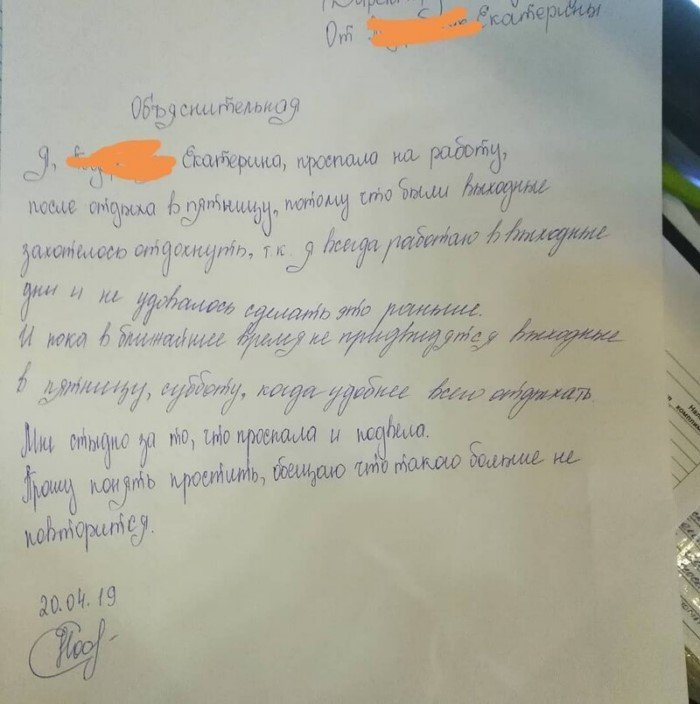 (Директор
От Екатерины
Объяснительная
Я, Екатерина, проспала на работу,
после отдыха в пятницу, потому что были выходные
захотелось отдохнуть, т.к. я всегда работаю в выходные
дни и не удовалось сделать это раньше.
И пока в ближайшее время не придвидятся выходные
в пятницу, субботу, когда удобнее всего отдыхать.
Мне стыдно за то, что проспала и подвела.
Прошу понять простить, обещаю что такого больше не
повторится.
20.04.19